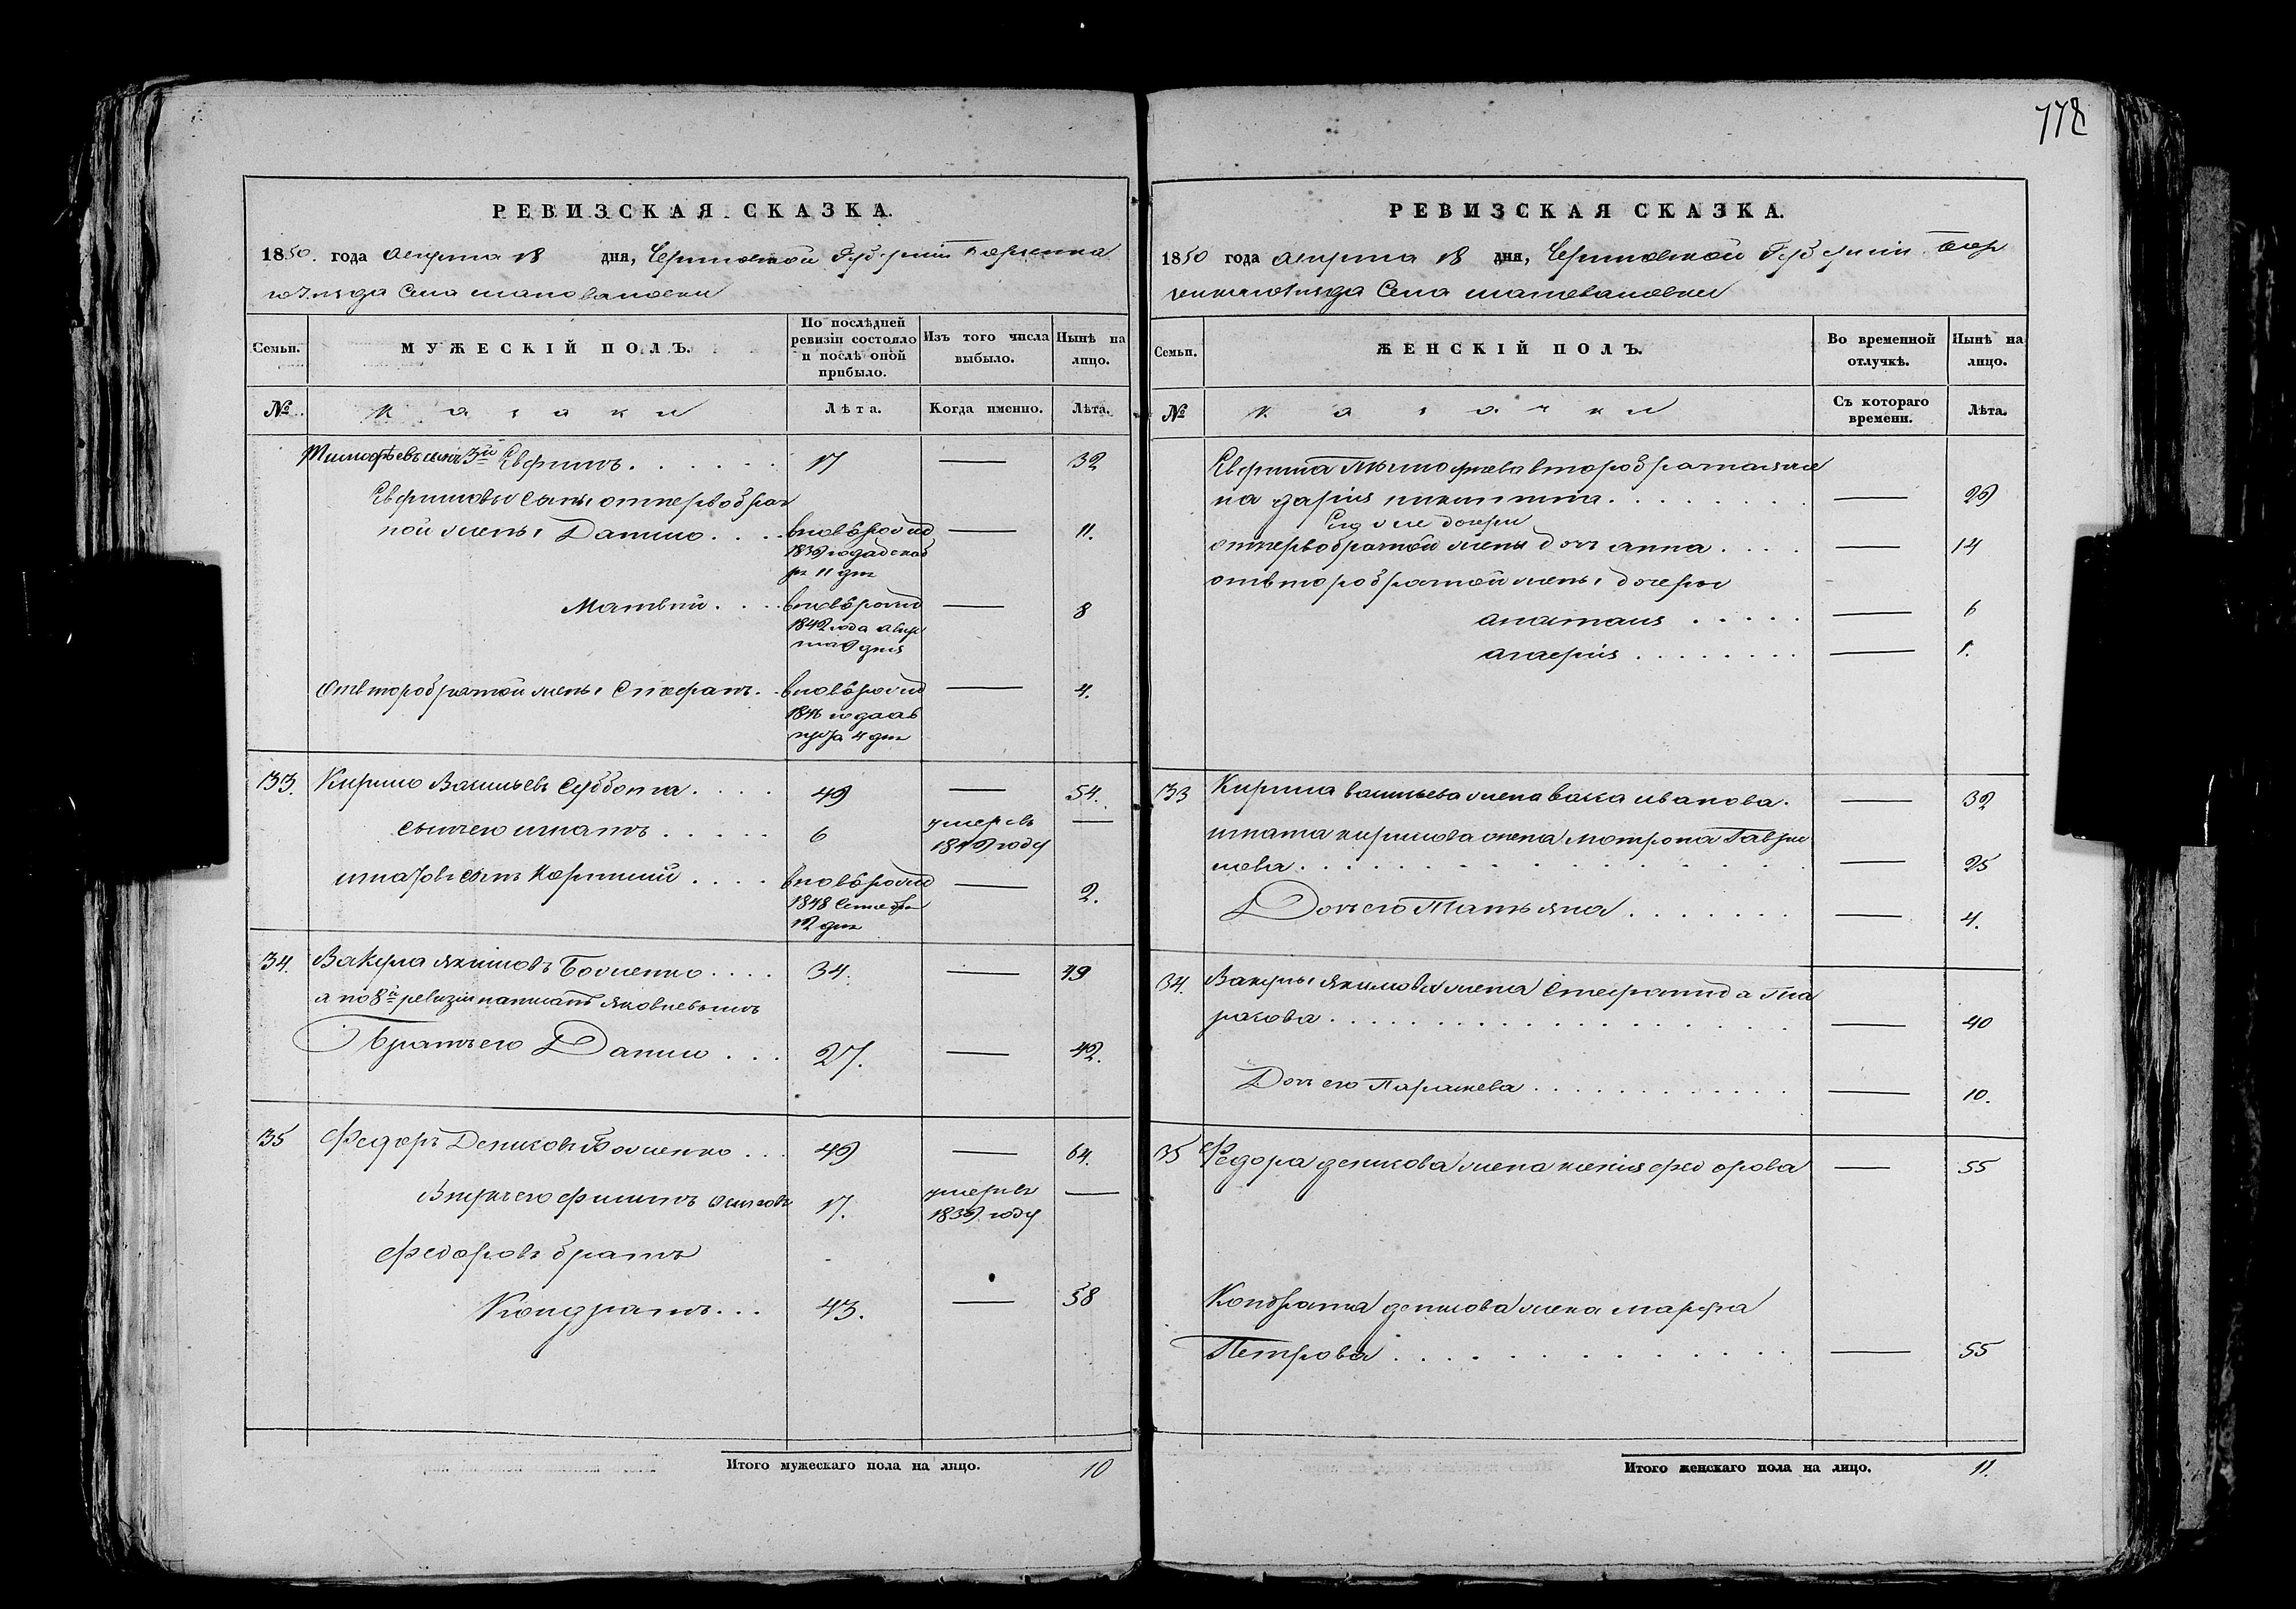 778
РЕВИЗСКАЯ СКАЗКА.
1850. года Августа 18 дня, Черниговской Губернии Борзенска
го Уезда Села Шаповаловки
Семьи.
МУЖЕСКІЙ ПОЛЪ.
По послѣдней ревизіи состояло и послѣ оной прибыло.
Изъ того числа выбыло.
Нынѣ на лицо.
№
Казаки
Лѣта.
Когда именно.
Лѣта.
Тимофѣевъ сынъ 3й Ефимъ 17 — 32
Ефимовы сыны отпервобрач
ной жены Данило вновь рожд — 11.
1839 года декаб
ря 11 дня
Матвѣй вновь рожд — 8
1842 года Авгу
ста 9 дня
Отвторобрачной жены Стефанъ вновь рожд — 4.
1846 года
4 дня
33. Кирило Васильевъ Суббота 49 — 54.
сынъ его Игнатъ 6 умеръ —
1849 году
Игнатовъ сынъ вновь рожд — 2.
1848 Сентября
12 дня
34. Вакула Якимовъ Боженко 34. — 49
а по 8й ревизіи написанъ Яковлевымъ
братъ его Данило 27. — 42.
35 Федоръ Денисовъ Боженко 49 — 64.
Внукъ его Филипъ Осиповъ 17. умеръ —
1839 году
Федоровъ братъ
Кондратъ 43. — 58
Итого мужескаго пола на лицо. 10
РЕВИЗСКАЯ СКАЗКА.
1850 года Августа 18 дня, Черниговской Губернии Бор
зенскаго Уезда Села Шаповаловки
Семьи.
ЖЕНСКІЙ ПОЛЪ.
Во временной отлучкѣ.
Нынѣ на лицо.
№
Казачки
Съ котораго времени.
Лѣта.
Ефима Тимофеева второбрачная же
на Дарія Никитина — 29
Его же дочери
отпервобрачной жены дочь Анна — 14
отвторобрачной жены дочеры
Анастасія — 6
Агафія — 1.
33 Кирила Васильева жена Васа Иванова. — 32
Игната Кирилова жена Мотрона Гаври
лова — 25
Дочь его Татьяна — 4.
34. Вакулы Якимова жена Стефанида Та
расова — 40
Дочь его Параскева — 10.
35 Федора Денисова жена Ксенія Федорова — 55
Кондрата Денисова жена Марфа
Петрова — 55
Итого женскаго пола на лицо. 11.